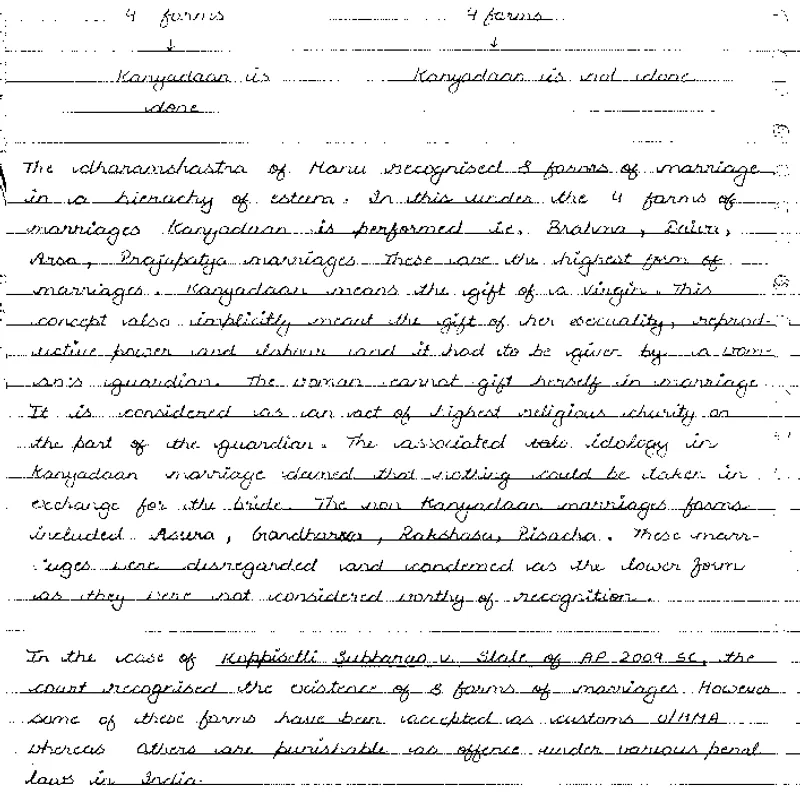 4 forms 4 forms
↓ ↓
Kanyadaan is Kanyadaan is not done
done
The dharamshastra of Manu recognised 8 forms of marriage
in a hierachy of esteem. In this under the 4 forms of
marriages Kanyadaan is performed ie. Brahma, Daiva,
Arsa, Prajapatya marriages. These are the highest form of
marriages. Kanyadaan means the gift of a virgin. This
concept also implicitly meant the gift of her sexuality, reprod-
uctive power and labour and it had to be given by a wom-
an's guardian. The woman cannot gift herself in marriage
It is considered as an act of highest religious charity on
the part of the guardian. The associated idology in
Kanyadaan marriage deemed that nothing could be taken in
exchange for the bride. The non Kanyadaan marriages forms
included Asura, Gandharva, Rakshasa, Pisacha. These marr-
iages were disregarded and condemed as the lower form
as they were not considered worthy of recognition.
In the case of Koppisetti Subbarao v. State of AP 2009 SC, the
court recognised the existence of 8 forms of marriages. However
some of these forms have been accepted as customs u/HMA
whereas others are punishable as offence under various penal
laws in India.